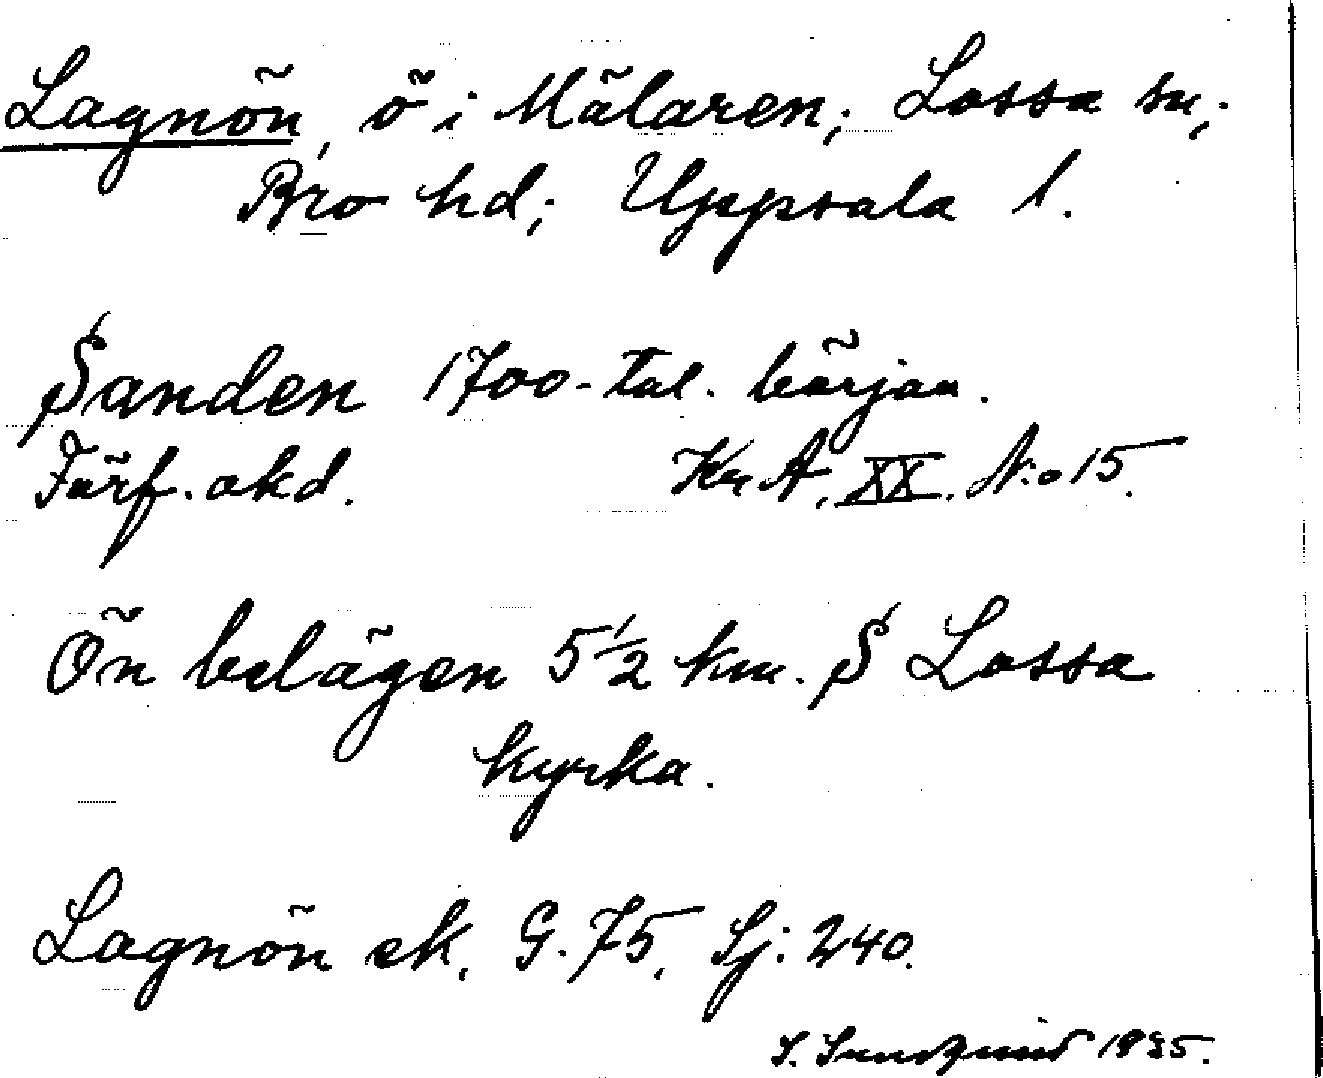 Lagnön, ö i Mälaren; Lossa sn;
Bro hd; Uppsala l.
Sanden 1700-tal. början.
Förf. okd. Kr A, XX. N:o 15.
Ön belägen 5 1/2 km. S Lossa
kyrka.
Lagnön ek. G. 75, Sj: 240.
S. Sundquist 1935.